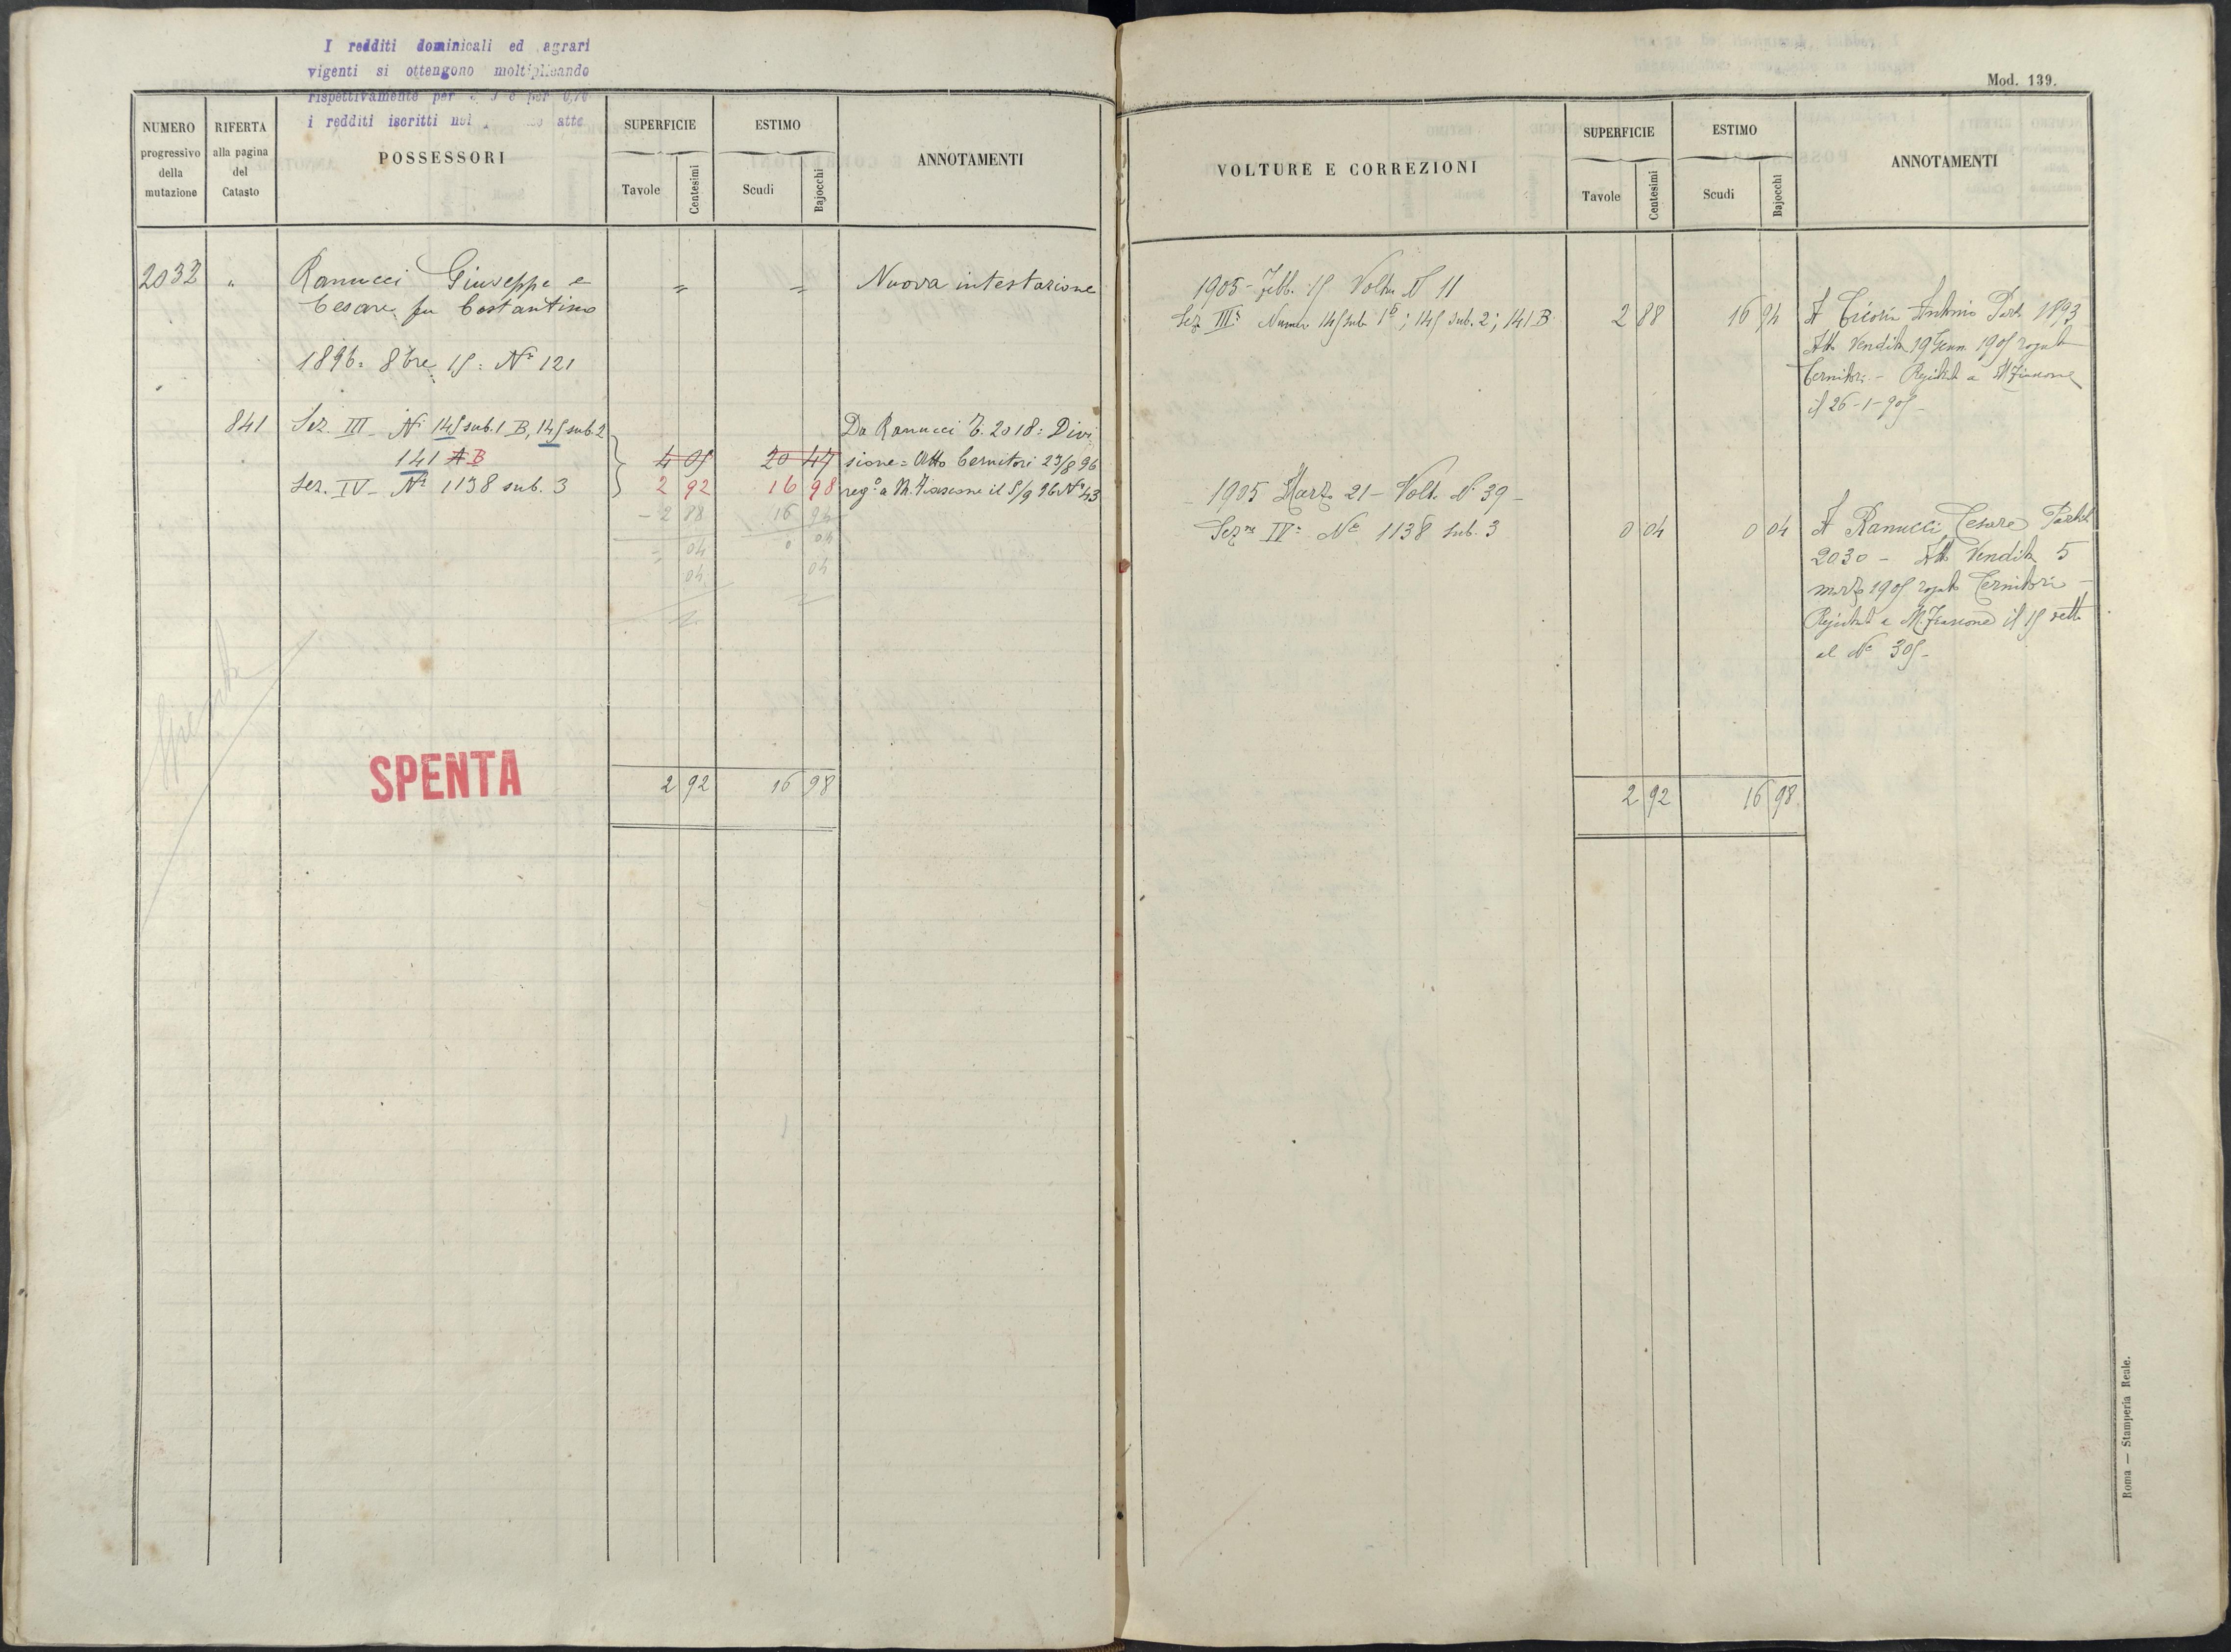 I redditi dominicali ed agrari
vigenti si ottengono moltiplicando
rispettivamente per e per 0,70
i redditi iscritti nel atto
NUMERO progressivo della mutazione
RIFERTA alla pagina del Catasto
POSSESSORI
SUPERFICIE
Tavole Centesimi
ESTIMO
Scudi Bajocchi
ANNOTAMENTI
2032 " Ranucci Giuseppe e = = Nuova intestazione
Cesare fu Costantino
1896: 8bre 15: Nº 121
841 Sez. III - Nº 145 sub. 1 B, 145 sub. 2 Da Ranucci T. 2018: Divi
141 A B 4 05 20 47 sione = Atto Cernitori 27/8 96
Sez. IV - Nº 1138 sub. 3 2 92 16 98 rego a M. Fiascone il 5/9 96 Nº 43
- 2 88 16 94
= 04 0 04
04 04
Spenta
SPENTA
2 92 16 98
Mod. 139.
VOLTURE E CORREZIONI
SUPERFICIE
Tavole Centesimi
ESTIMO
Scudi Bajocchi
ANNOTAMENTI
1905 - Febb. 15 Volt. N 11
Sez. IIIª Numeri 145 sub 1 b; 145 sub. 2; 141 B 2 88 16 94 A Antonio Part. 1893
Atto Vendita 19 Genn 1905 rogato
Cernitori - Registrato a M. Fiascone
il 26-1-905 -
- 1905 Marzo 21 - Volt. Nº 39 -
Sezne IVª Nº 1138 sub. 3 0 04 0 04 A Ranucci Cesare Partita
2030 - Atto Vendita 5
marzo 1905 rogato Cernitori -
Registrato a M. Fiascone il 15 detto
al Nº 305 -
2 92 16 98
Roma — Stamperia Reale.